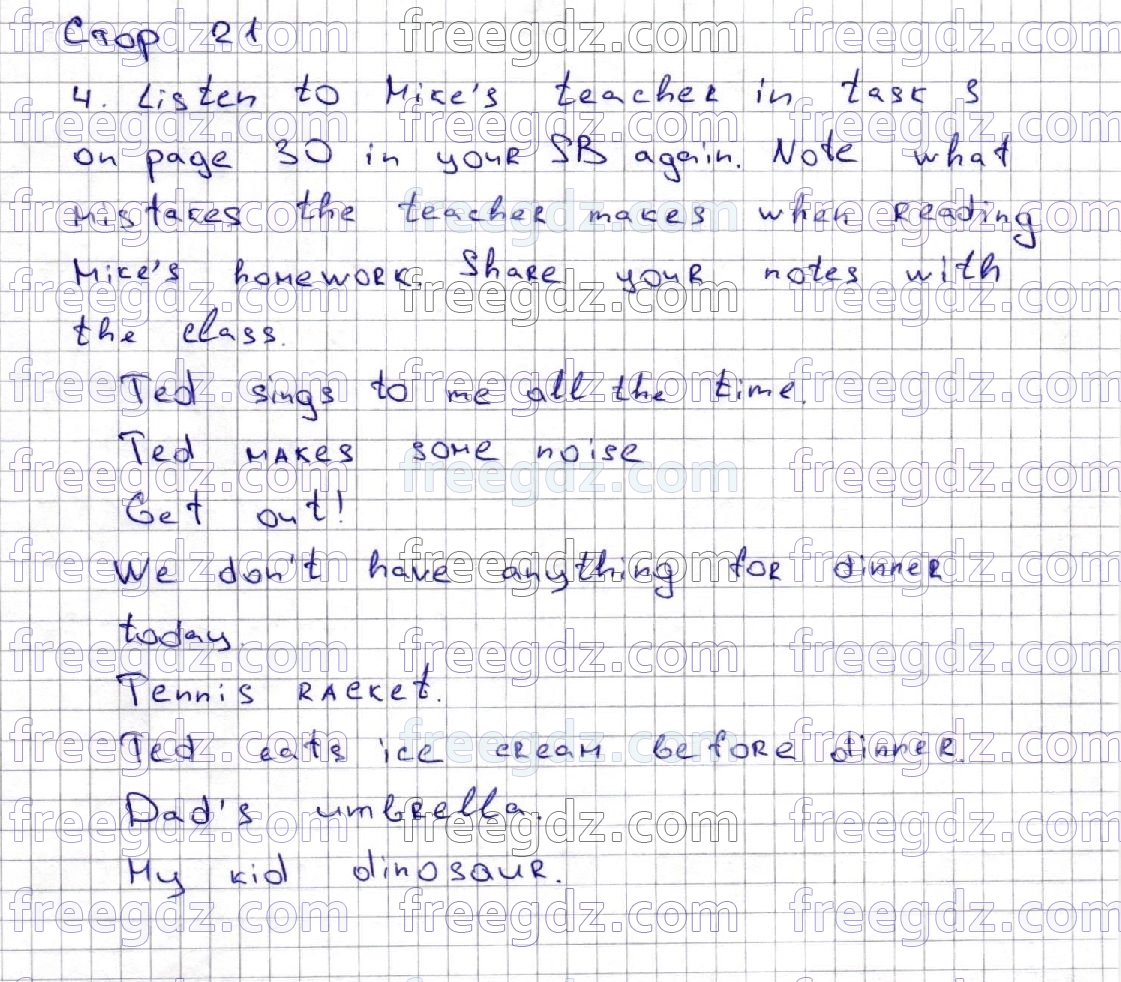 Стор 21
4. Listen to Mike's teacher in task 3
on page 30 in your SB again. Note what
mistakes the teacher makes when reading
Mike's homework. Share your notes with
the class.
Ted sings to me all the time.
Ted makes some noise
Get out!
We don't have anything for dinner
today.
Tennis racket.
Ted eats ice cream before dinner.
Dad's umbrella.
My kid dinosaur.